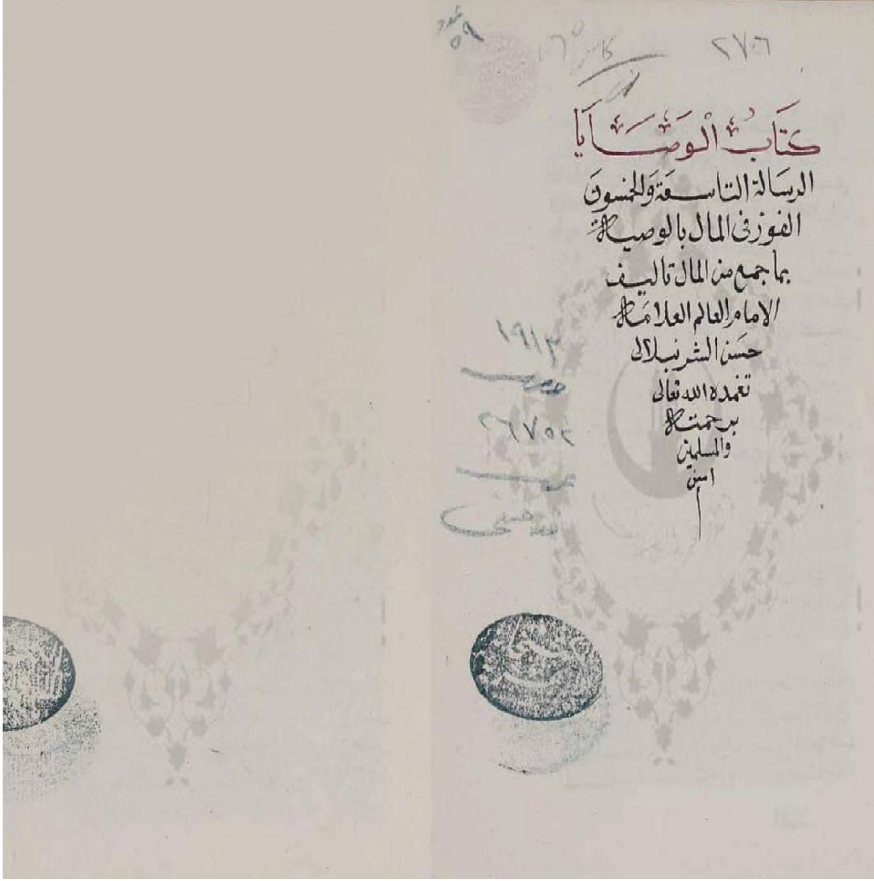 عدد
٥٩
٢٧٠٦
كتاب الوصايا
الرسالة التاسعة والخمسون
الفوز في المال بالوصية
بما جمع من المال تاليف
الامام العالم العلامة
حسن الشرنبلالى
تغمده الله تعالى
برحمته
والمسلمين
امين
١٩١٣
٢٦٧٥٢
حنفى